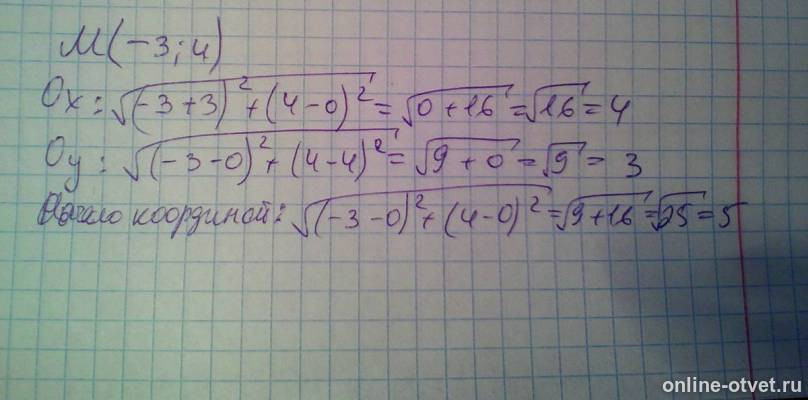 M(-3;4)
Ox: √(-3+3)²+(4-0)² = √0+16 = √16 = 4
Oy: √(-3-0)²+(4-4)² = √9+0 = √9 = 3
Начало координат: √(-3-0)²+(4-0)² = √9+16 = √25 = 5
online-otvet.ru